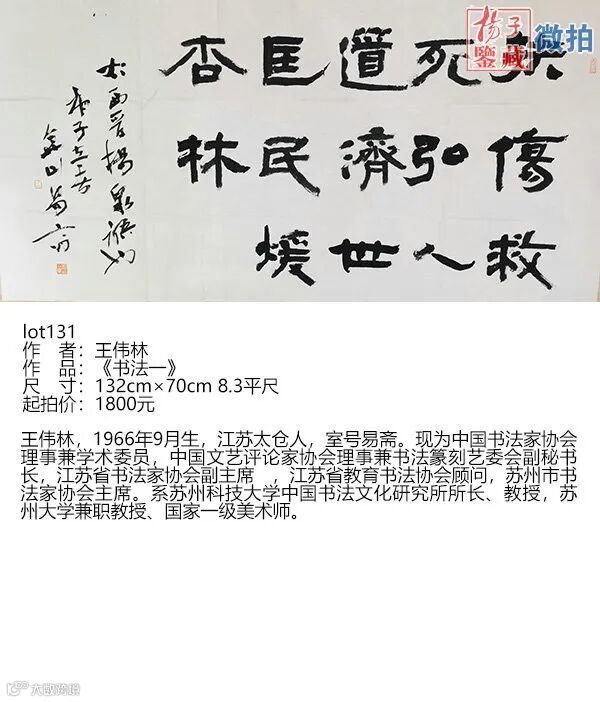 揚子
鑒藏
微拍
扶傷救
死弘人
道濟世
匡民煖
杏林
西晉楊泉語
庚子
lot131
作　者：王伟林
作　品：《书法一》
尺　寸：132cm×70cm 8.3平尺
起拍价：1800元
王伟林，1966年9月生，江苏太仓人，室号易斋。现为中国书法家协会
理事兼学术委员，中国文艺评论家协会理事兼书法篆刻艺委会副秘书
长，江苏省书法家协会副主席　，江苏省教育书法协会顾问，苏州市书
法家协会主席。系苏州科技大学中国书法文化研究所所长、教授，苏
州大学兼职教授、国家一级美术师。
大数跨境